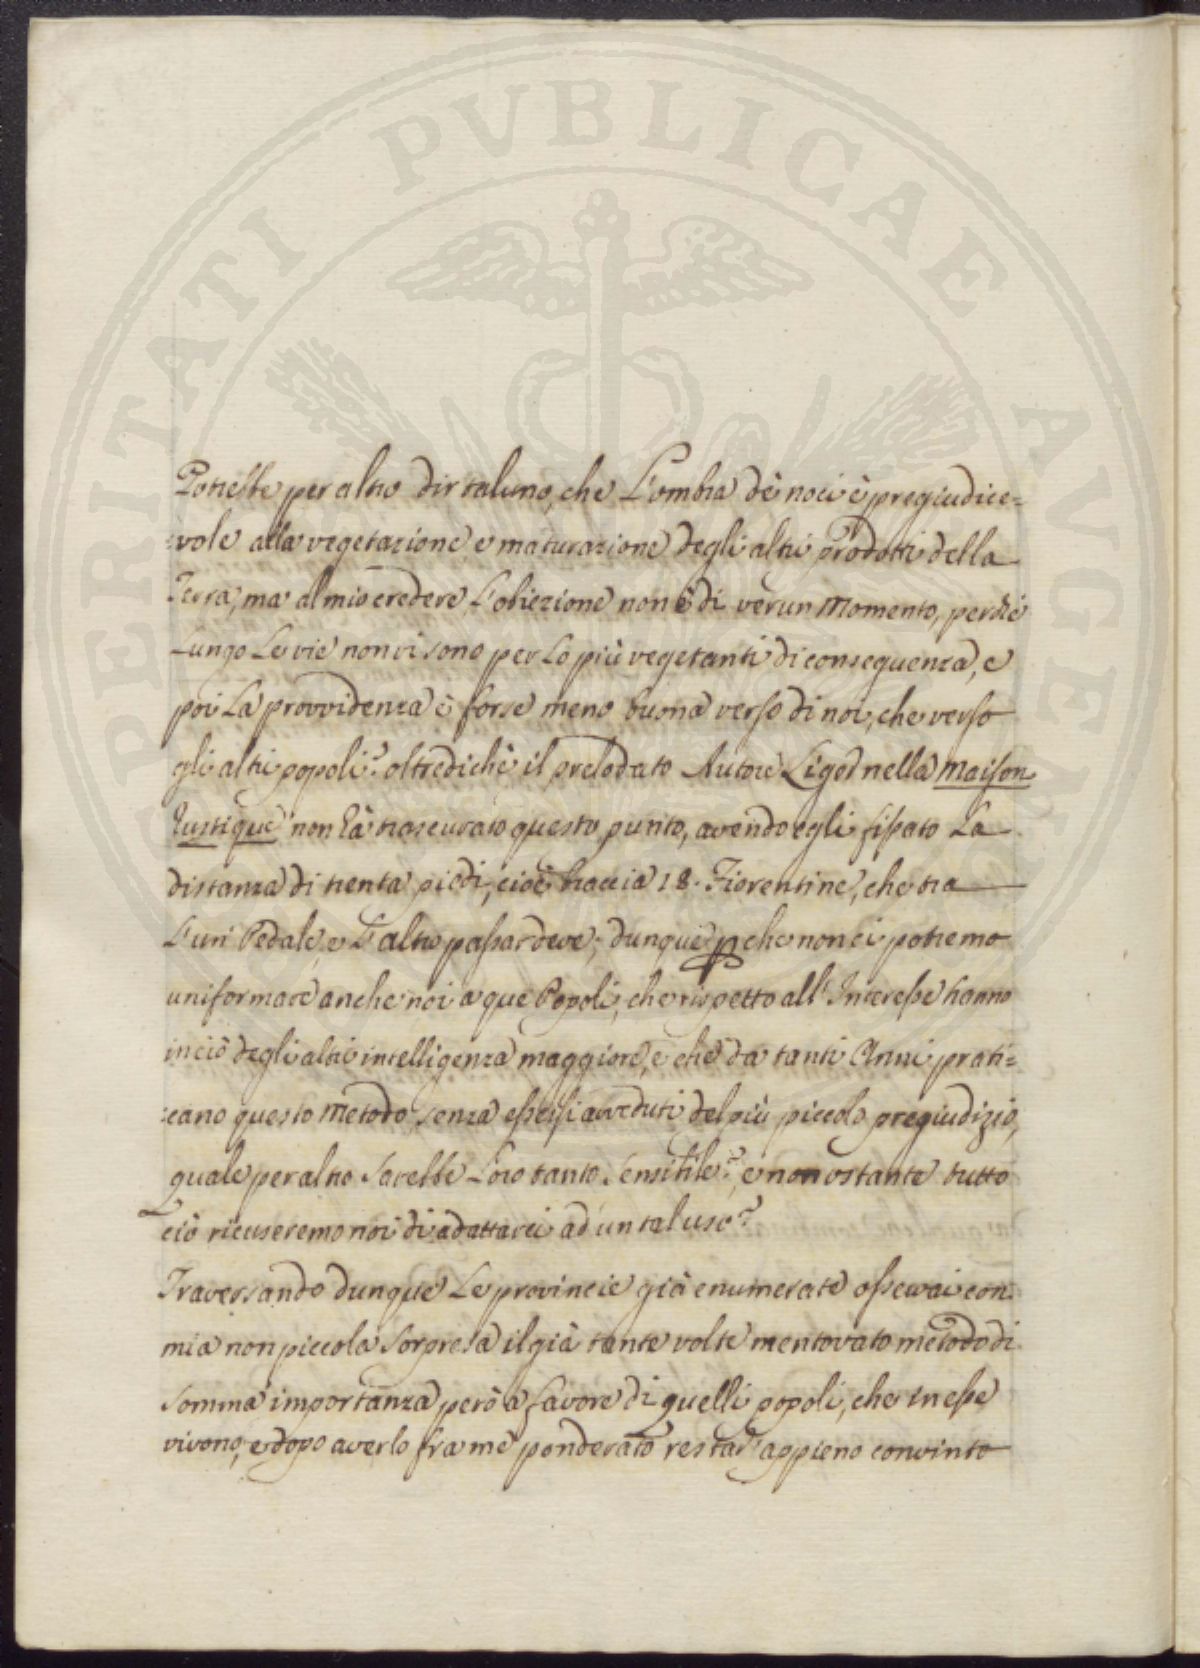 PROSPERITATI PVBLICAE AVGENDAE
Potrebbe per altro dir taluno, che L'ombra de noci è pregiudice=
:vole alla vegetazione e maturazione degli altri prodotti della
Terra, ma al mio credere L'obiezione non è di verun momento, perchè
Lungo Le vie non vi sono per Lo più vegetanti di conseguenza, e
poi La provvidenza è forse meno buona verso di noi, che verso
gli altri popoli? oltredichè il prelodato Autore Liger nella maison
Rustique non hà trascurato questo punto, avendo egli fissato La
distanza di trenta piedi, cioè braccia 18. Fiorentine, che tra
L'un Pedale, e L'altro passar deve; dunque p che non ci potremo
uniformare anche noi a que Popoli, che rispetto all'Interesse hanno
in ciò degli altri intelligenza maggiore, e che da tanti Anni prati=
:cano questo metodo senza essersi avveduti del più piccolo pregiudizio,
quale per altro sarebbe Loro tanto sensibile?, e non ostante tutto
ciò ricuseremo noi di adattarci ad un tal uso?
Traversando dunque Le provincie già enumerate osservai con
mia non piccola sorpresa il già tante volte mentovato metodo di
somma importanza però a favore di quelli popoli, che in esse
vivono, e dopo averlo fra me ponderato restai appieno convinto